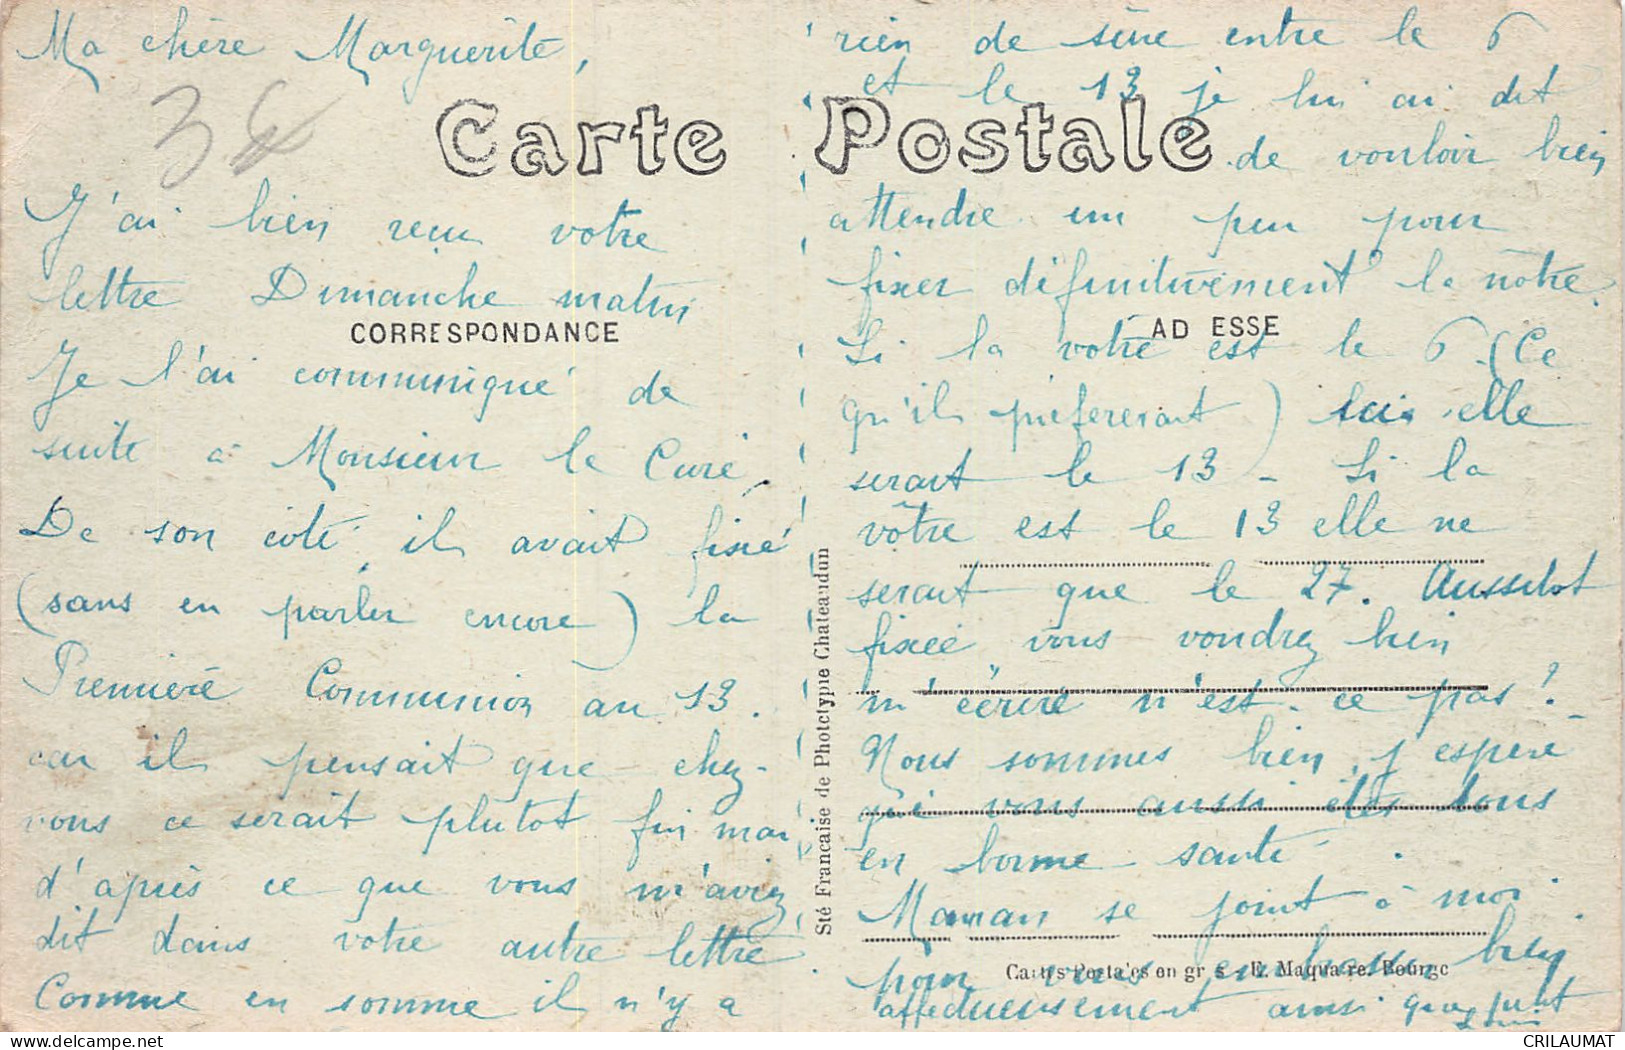 Ma chère Marguerite,
Carte Postale
J'ai bien reçu votre
lettre Dimanche matin
CORRESPONDANCE
Je l'ai communiqué de
suite à Monsieur le Curé.
De son côté il avait fixé
(sans en parler encore) la
Première Communion au 13.
car il pensait que chez-
vous ce serait plutot fin mai
d'après ce que vous m'aviez
dit dans votre autre lettre.
Comme en somme il n'y a
Sté Francaise de Phototypie Chateaudun
rien de sûre entre le 6
et le 13 je lui ai dit
de vouloir bien
attendre un peu pour
fixer définitivement la nôtre.
AD ESSE
Si la votre est le 6. (Ce
qu'il préfererait) elle
serait le 13 - Si la
vôtre est le 13 elle ne
serait que le 27. Aussitot
fixée vous voudrez bien
m'écrire n'est-ce pas?
Nous sommes bien, j'espere
que vous aussi êtes tous
en bonne santé.
Maman se joint à moi
pour vous embrasser bien
E. Maquaire. Bourge
affectueusement ainsi que petit
CRILAUMAT